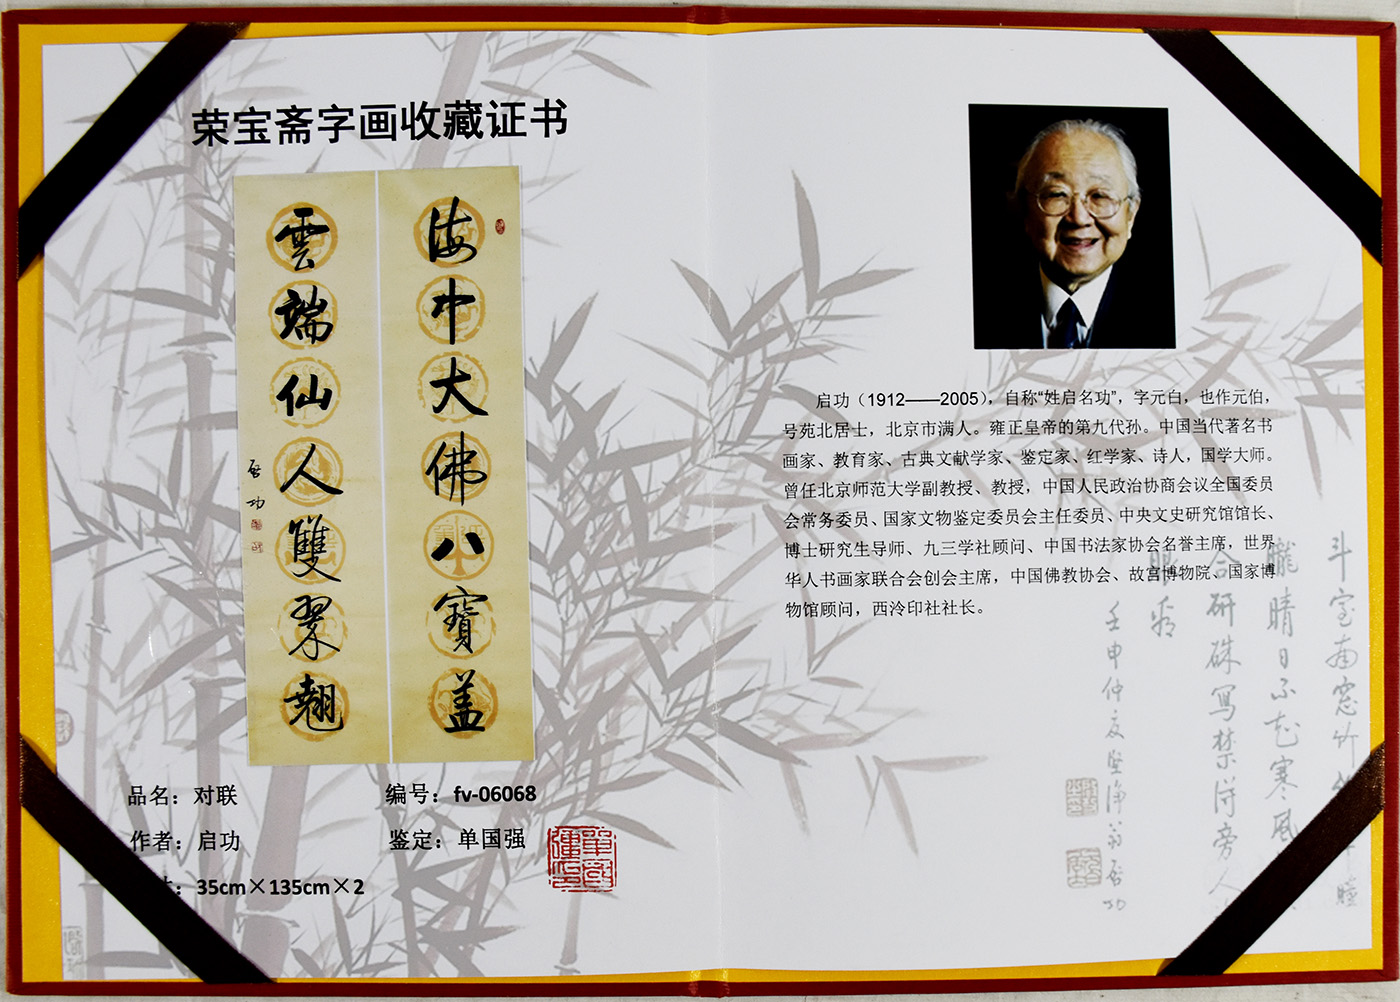 荣宝斋字画收藏证书
海中大佛八寶盖
雲端仙人雙翠翹
启功
品名：对联
编号：fv-06068
作者：启功
鉴定：单国强
：35cm×135cm×2
启功（1912——2005），自称“姓启名功”，字元白，也作元伯，
号苑北居士，北京市满人。雍正皇帝的第九代孙。中国当代著名书
画家、教育家、古典文献学家、鉴定家、红学家、诗人，国学大师。
曾任北京师范大学副教授、教授，中国人民政治协商会议全国委员
会常务委员、国家文物鉴定委员会主任委员、中央文史研究馆馆长、
博士研究生导师、九三学社顾问、中国书法家协会名誉主席，世界
华人书画家联合会创会主席，中国佛教协会、故宫博物院、国家博
物馆顾问，西泠印社社长。
斗室南窗竹
朧晴日不知寒風
合研硃寫禁得旁人
眼看
壬申仲夏堅淨翁启功